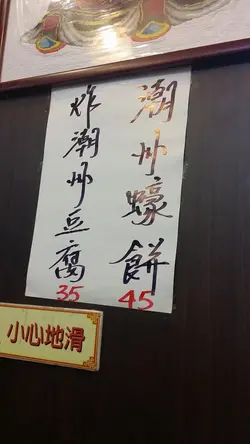 潮州蠔餅
45
炸潮州豆腐
35
小心地滑